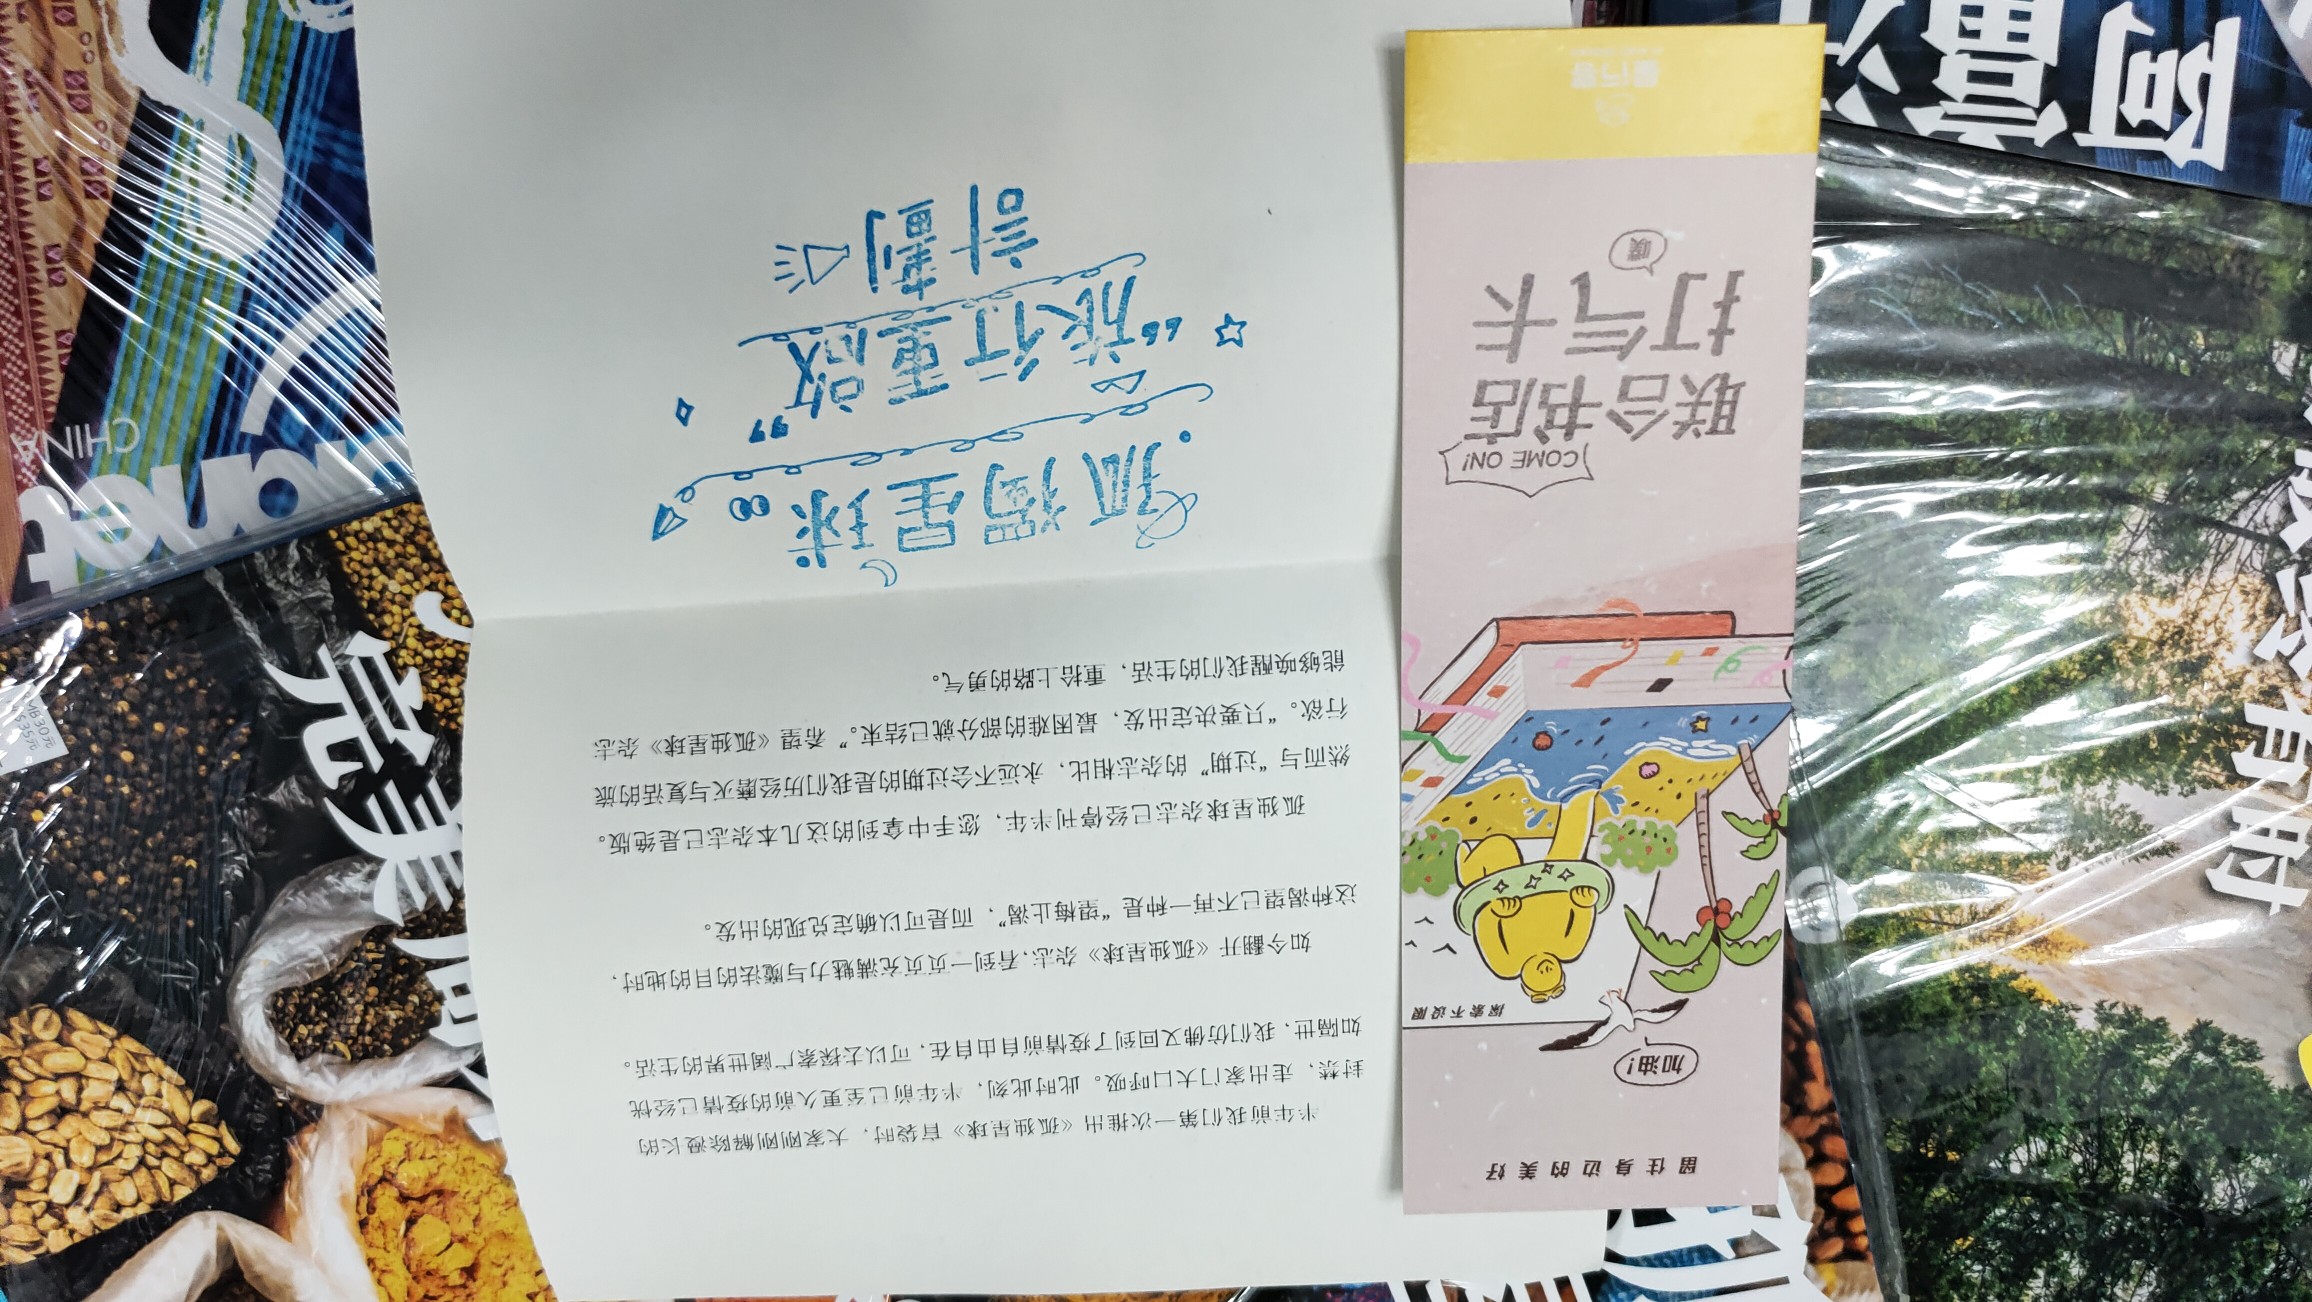 留住身边的美好
加油!
探索不设限
COME ON!
联合书店
打气卡
半年前我们第一次推出《孤独星球》盲袋时，大家刚刚解除漫长的
封禁，走出家门大口呼吸。此时此刻，半年前已至更久前的疫情已经恍
如隔世，我们仿佛又回到了疫情前自由自在，可以去探索广阔世界的生活。
如今翻开《孤独星球》杂志，看到一页页充满魅力与魔法的目的地时，
这种渴望已不再一种是“望梅止渴”，而是可以确定兑现的出发。
孤独星球杂志已经停刊半年，您手中拿到的这几本杂志已是绝版。
然而与“过期”的杂志相比，永远不会过期的是我们历经磨灭与复活的旅
行欲。“只要决定出发，最困难的部分就已结束。”希望《孤独星球》杂志
能够唤醒我们的生活，重拾上路的勇气。
孤獨星球
“旅行重啟”
計劃
完美
anet
CHINA
阿富
有时